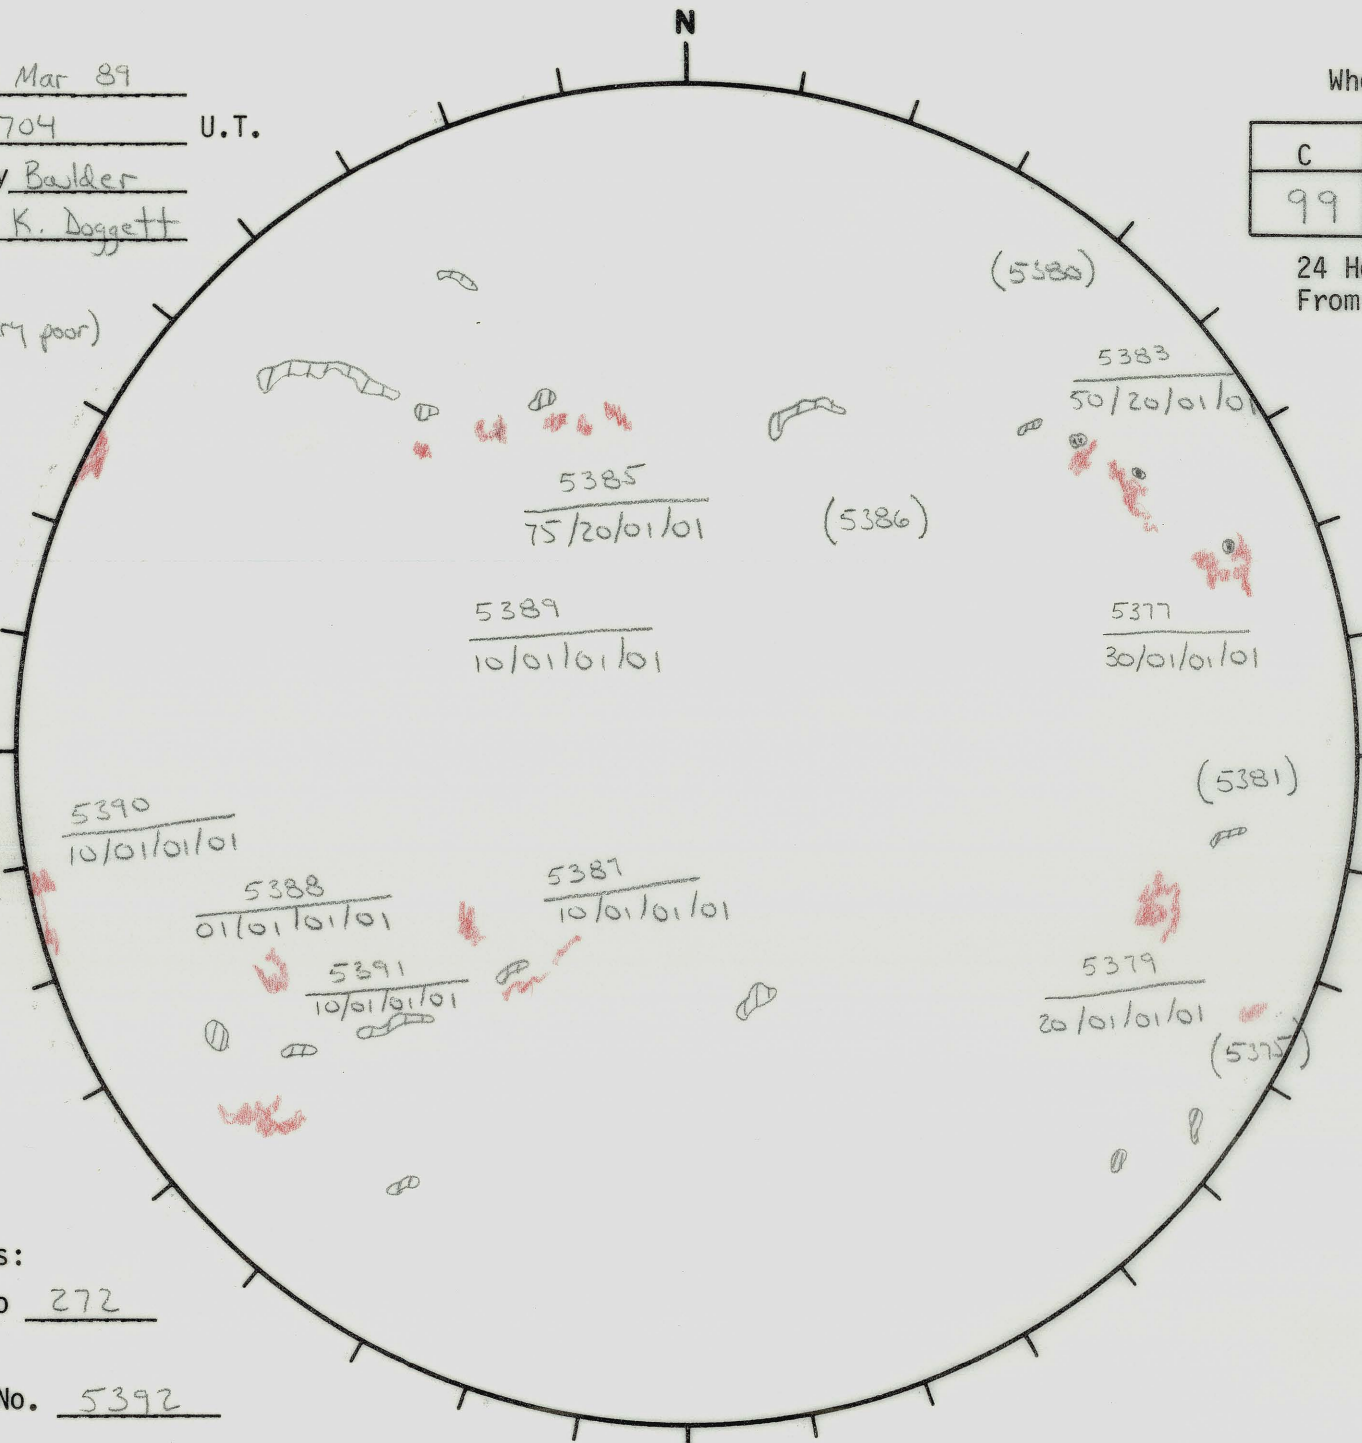 N
Mar 89
704 U.T.
y Boulder
K. Doggett
ry poor)
Who
C
99
24 Ho
From
(5380)
5383
50/20/01/01
5385
75/20/01/01
(5386)
5389
10/01/01/01
5377
30/01/01/01
(5381)
5390
10/01/01/01
5388
01/01/01/01
5387
10/01/01/01
5391
10/01/01/01
5379
20/01/01/01
(5375)
s:
o 272
No. 5392